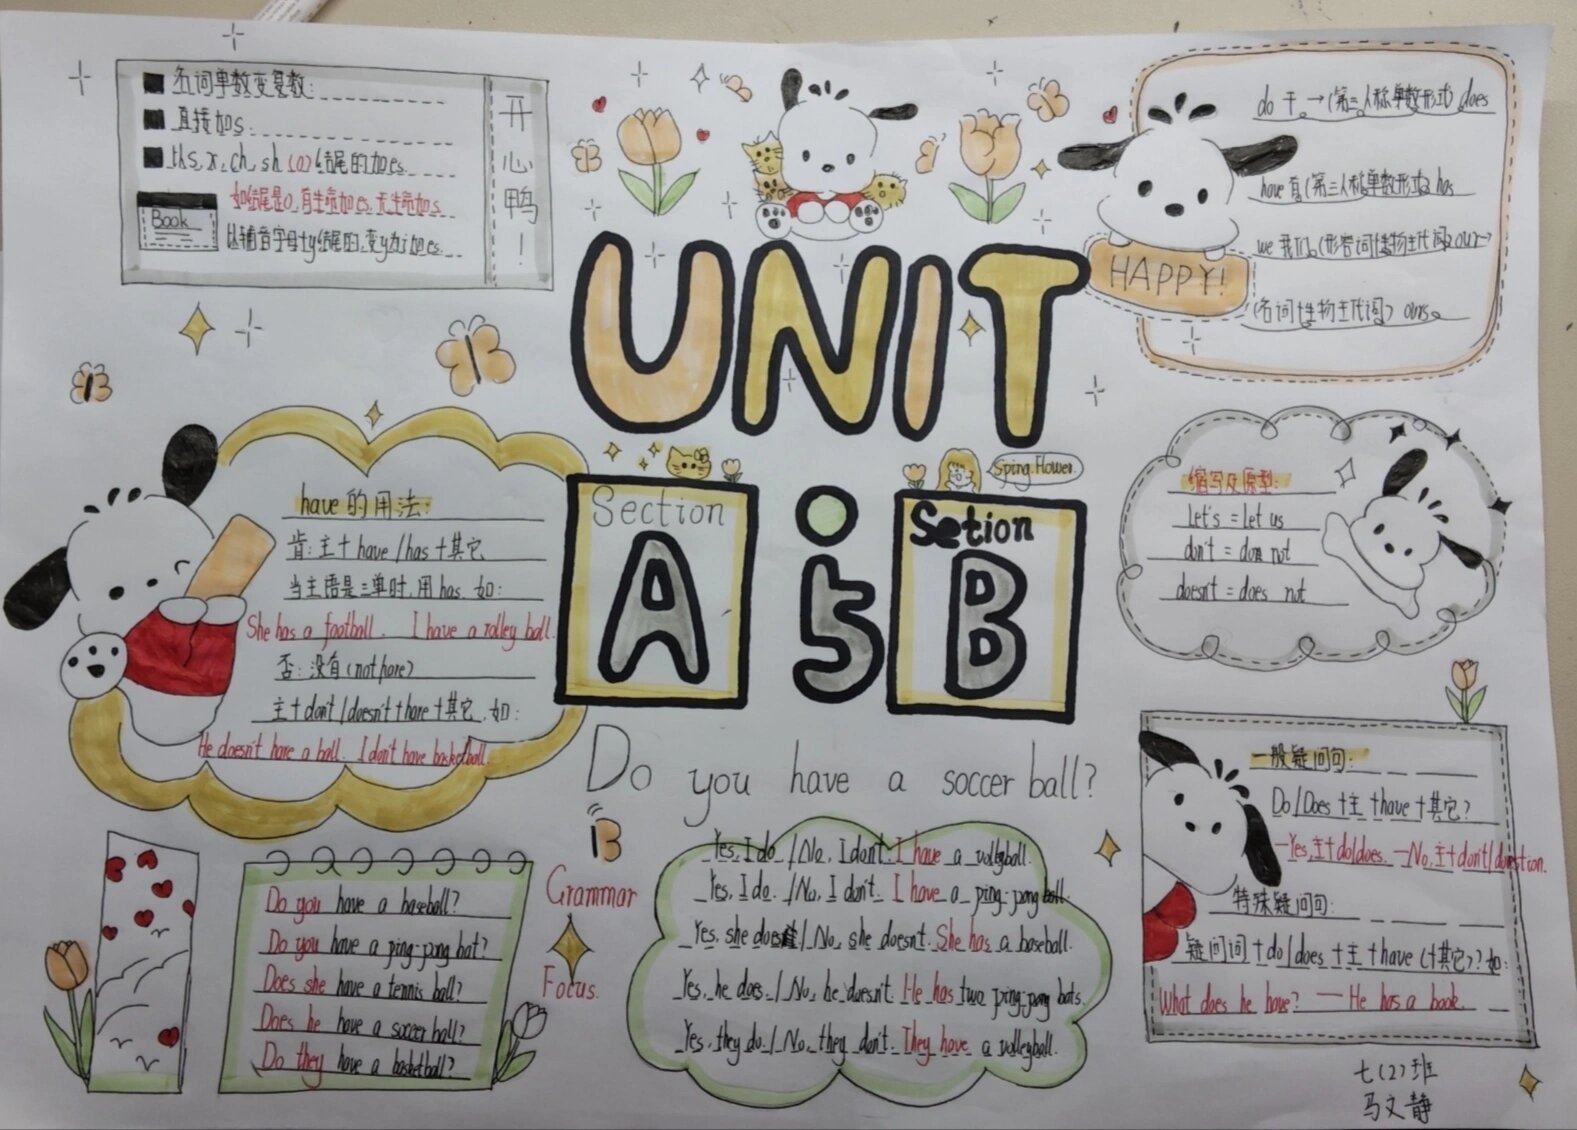 名词单数变复数:
直接加s.
以s,x,ch,sh,(o)结尾的加es.
如结尾是o,有生命加es,无生命加s.
以辅音字母+y结尾的,变y为i加es.
Book
开心鸭!
do 干 →(第三人称单数形式) does
have 有(第三人称单数形式) has
we 我们 (形容词性物主代词) our→
(名词性物主代词) ours
HAPPY!
UNIT
5
Section
A
Sping Flower.
Setion
B
have的用法:
肯:主+have/has+其它
当主语是三单时,用has,如:
She has a football. I have a volley ball.
否:没有(not have)
主+don't/doesn't+have+其它,如:
He doesn't have a ball. I don't have basketball.
缩写及原型:
Let's = let us
don't = don not
doesn't = does not
Do you have a soccer ball?
Do you have a baseball?
Do you have a ping-pong bat?
Does she have a tennis ball?
Does he have a soccer ball?
Do they have a basketball?
Grammar
Focus.
Yes, I do. / No, I don't. I have a volleyball.
Yes, I do. / No, I don't. I have a ping-pong ball.
Yes, she does / No, she doesn't. She has a baseball.
Yes, he does. / No, he doesn't. He has two ping-pong bats.
Yes, they do. / No, they don't. They have a volleyball.
一般疑问句:
Do/Does+主+have+其它?
—Yes,主+do/does. —No,主+don't/
特殊疑问句:
疑问词+do/does+主+have(+其它)?如:
What does he have? — He has a book.
七(2)班
马文静